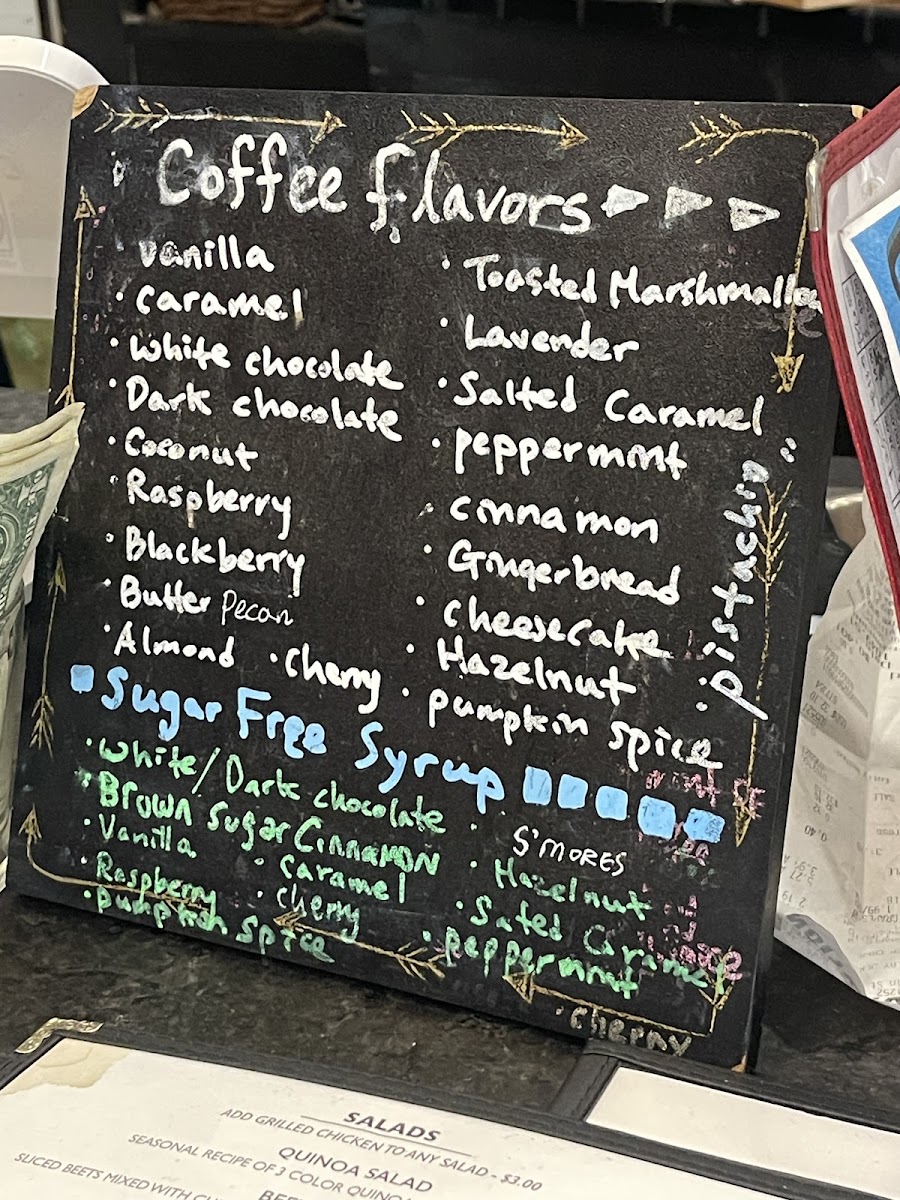 Coffee flavors
vanilla
• caramel
• White chocolate
• Dark chocolate
• Coconut
• Raspberry
• Blackberry
• Butter Pecan
• Almond • Cherry
• Toasted Marshmallow
• Lavender
• Salted Caramel
• peppermint
• cinnamon
• Gingerbread
• cheesecake
• Hazelnut
• pumpkin spice
• pistachio
Sugar Free Syrup
• White/Dark chocolate
• Brown Sugar Cinnamon
• Vanilla
• Caramel
• Raspberry
• Cherry
• pumpkin spice
S'MORES
• Hazelnut
• Salted Caramel
• peppermint
• cherry
SALADS
ADD GRILLED CHICKEN TO ANY SALAD - $3.00
QUINOA SALAD
SEASONAL RECIPE OF 3 COLOR QUINOA
SLICED BEETS MIXED WITH